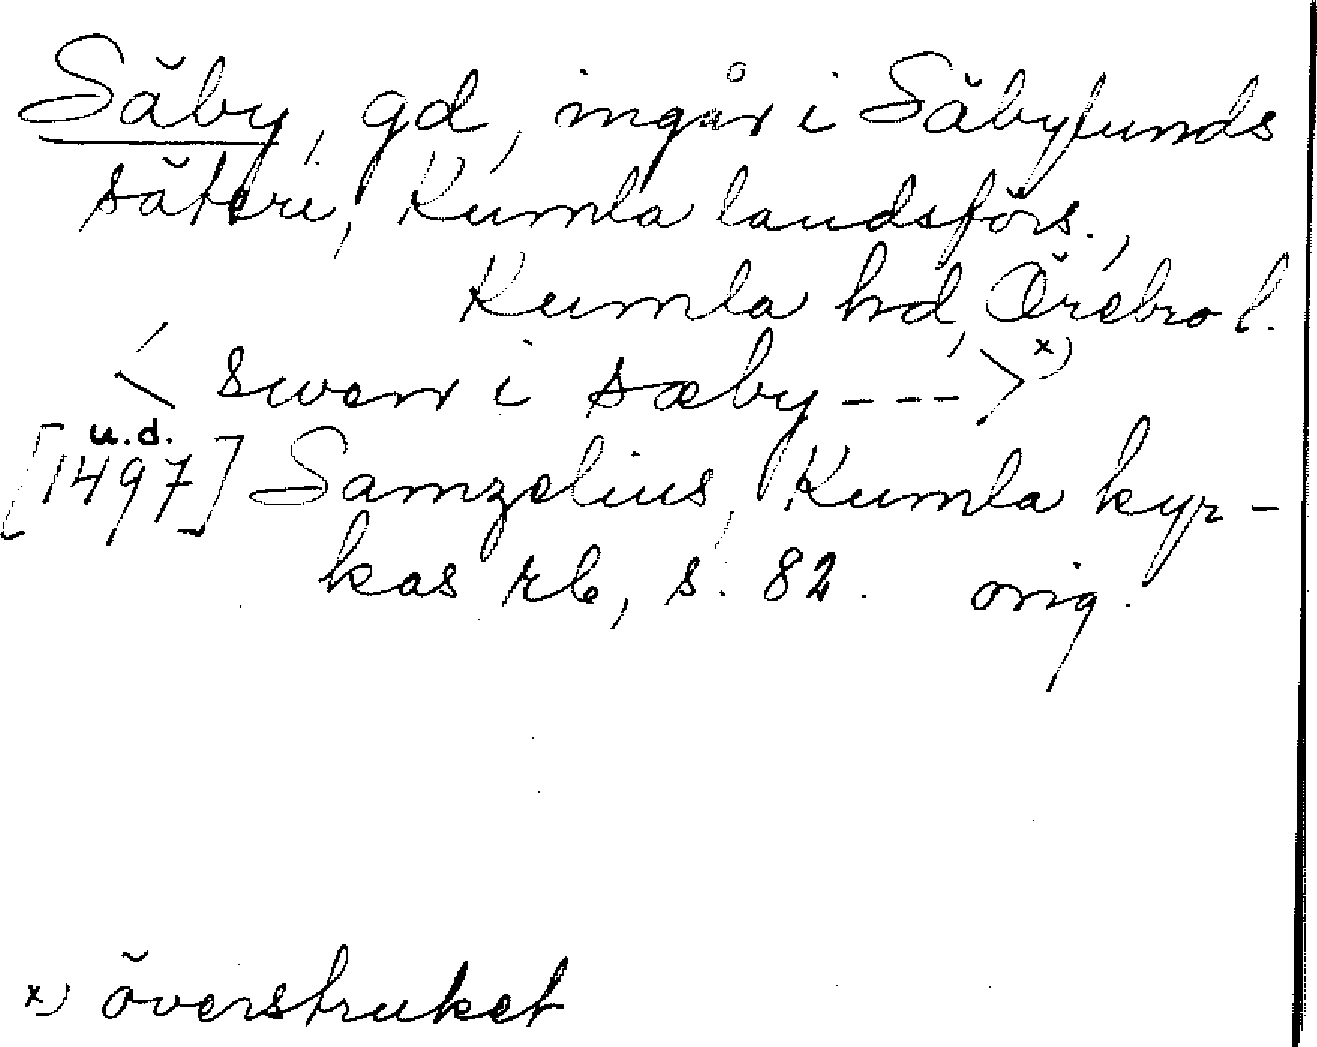 Säby, gd, ingår i Säbylunds
säteri, Kumla landsförs.,
Kumla hd, Örebro l.
< swen i sæby --- > x)
u.d.
[1497] Samzelius, Kumla kyr-
kas rb, s. 82. orig.
x) överstruket